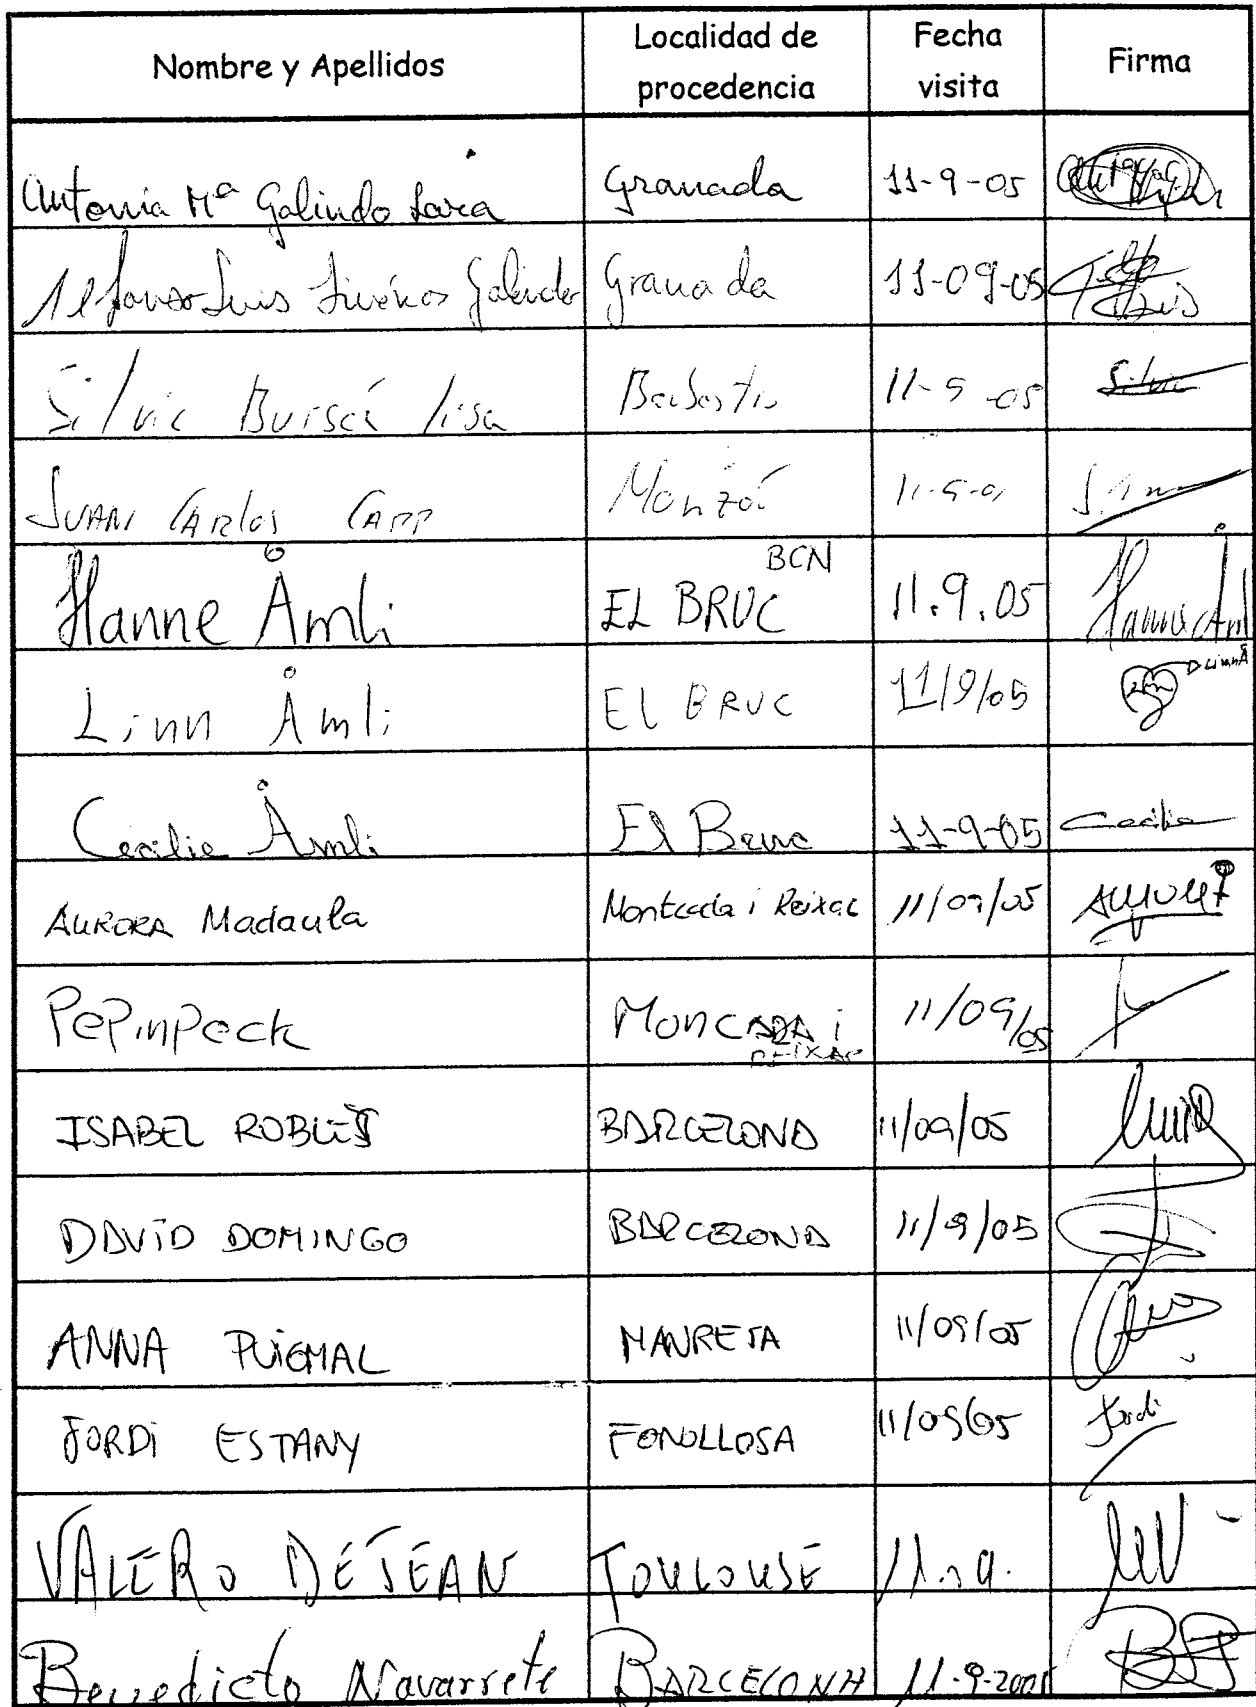 Nombre y Apellidos Localidad de procedencia Fecha visita Firma
Antonia Mª Galindo Lara Granada 11-9-05
Alfonso Luis Galindo Granada 11-09-05
Silvia lisa 11-9-05 Silvia
JUAN CARLOS Monzón
Hanne Åmli EL BRUC BCN 11.9.05 Hanne Åml
Linn Åmli El BRUC 11/9/05
Cecilie Åmli El Bruc 11-9-05 Cecilie
AURORA Madaula Montcada i Reixac 11/09/05
PePinPeck MONCADA i REIXAC 11/09/05
ISABEL ROBLES BARCELONA 11/09/05
DAVID DOMINGO BARCELONA 11/9/05
ANNA PUIGMAL MANRESA 11/09/05
JORDI ESTANY FONOLLOSA 11/09/05 Jordi
VALERO DEJEAN TOULOUSE
Benedicto Navarrete BARCELONA 11-9-2005